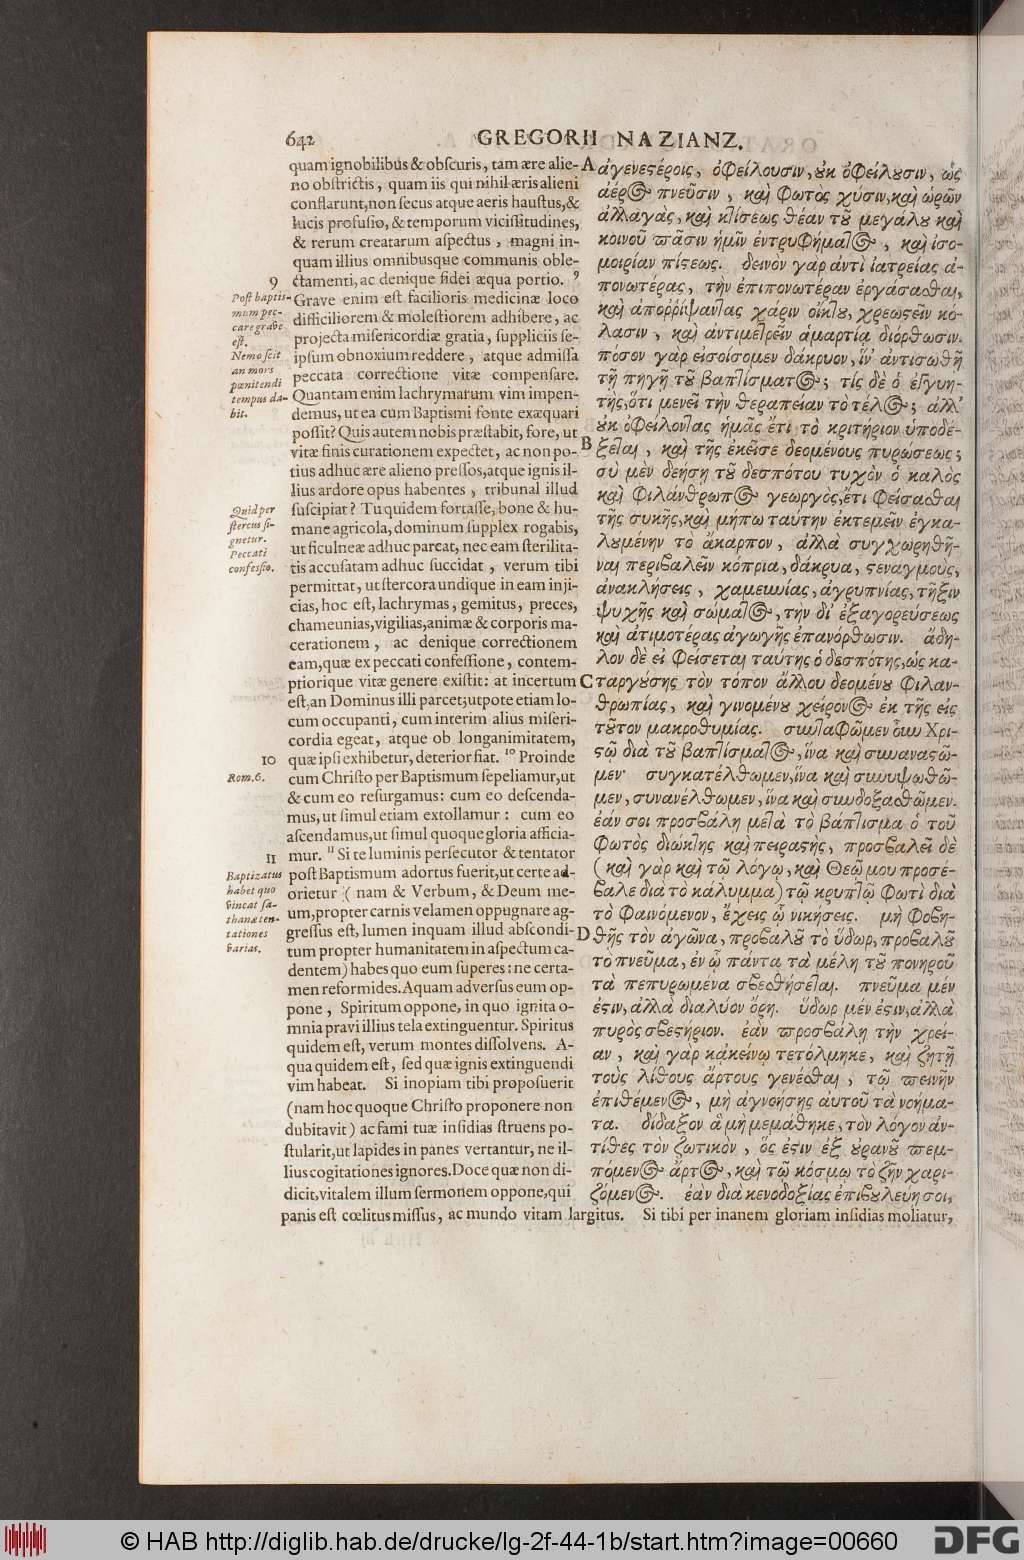 642
GREGORII NAZIANZ.
quam ignobilibus & obscuris, tam ære alie-
no obstrictis, quam iis qui nihil æris alieni
constarunt, non secus atque aeris haustus, &
lucis profusio, & temporum vicissitudines,
& rerum creatarum aspectus, magni in-
quam illius omnibusque communis oble-
ctamenti, ac denique fidei æqua portio. 9
Grave enim est facilioris medicinæ loco
difficiliorem & molestiorem adhibere, ac
projecta misericordiæ gratia, suppliciis se-
ipsum obnoxium reddere, atque admissa
peccata correctione vitæ compensare.
Quantam enim lachrymarum vim impen-
demus, ut ea cum Baptismi fonte exæquari
possit? Quis autem nobis præstabit, fore, ut
vitæ finis curationem expectet, ac non po-
tius adhuc ære alieno pressos, atque ignis il-
lius ardore opus habentes, tribunal illud
suscipiat? Tu quidem fortasse, bone & hu-
mane agricola, dominum supplex rogabis,
ut ficulneæ adhuc parcat, nec eam sterilita-
tis accusatam adhuc succidat, verum tibi
permittat, ut stercora undique in eam inji-
cias, hoc est, lachrymas, gemitus, preces,
chameunias, vigilias, animæ & corporis ma-
cerationem, ac denique correctionem
eam, quæ ex peccati confessione, contem-
priorique vitæ genere existit: at incertum
est, an Dominus illi parcet; utpote etiam lo-
cum occupanti, cum interim alius miseri-
cordia egeat, atque ob longanimitatem,
quæ ipsi exhibetur, deterior fiat. 10 Proinde
cum Christo per Baptismum sepeliamur, ut
& cum eo resurgamus: cum eo descenda-
mus, ut simul etiam extollamur: cum eo
ascendamus, ut simul quoque gloria afficia-
mur. 11 Si te luminis persecutor & tentator
post Baptismum adortus fuerit, ut certe ad-
orietur (nam & Verbum, & Deum me-
um, propter carnis velamen oppugnare ag-
gressus est, lumen inquam illud abscondi-
tum propter humanitatem in aspectum ca-
dentem) habes quo eum superes: ne certa-
men reformides. Aquam adversus eum op-
pone, Spiritum oppone, in quo ignita o-
mnia pravi illius tela extinguentur. Spiritus
quidem est, verum montes dissolvens. A-
qua quidem est, sed quæ ignis extinguendi
vim habeat. Si inopiam tibi proposuerit
(nam hoc quoque Christo proponere non
dubitavit) ac fami tuæ insidias struens po-
stularit, ut lapides in panes vertantur, ne il-
lius cogitationes ignores. Doce quæ non di-
dicit, vitalem illum sermonem oppone, qui
panis est cœlitus missus, ac mundo vitam largitus. Si tibi per inanem gloriam insidias moliatur,
9
Post baptis-
mum pec-
care grave
est.
Nemo scit
an mors
pœnitendi
tempus da-
bit.
Quid per
stercus si-
gnetur.
Peccati
confessio.
10
Rom. 6.
11
Baptizatus
habet quo
vincat sa-
thanæ ten-
tationes
varias.
A
B
C
D
ἀγενεστέροις, ὀφείλουσιν, ἐκ ὀφείλουσιν, ὡς
ἀέρος πνεῦσιν, καὶ φωτὸς χύσιν, καὶ ὡρῶν
ἀλλαγὰς, καὶ κτίσεως θέαν τοῦ μεγάλου καὶ
κοινοῦ πᾶσιν ἡμῖν ἐντρυφήματος, καὶ ἰσο-
μοιρίαν πίστεως. δεινὸν γὰρ ἀντὶ ἰατρείας ἀ-
πονωτέρας, τὴν ἐπιπονωτέραν ἐργάσασθαι,
καὶ ἀποῤῥίψαντας χάριν οἴκτου, χρεωστεῖν κό-
λασιν, καὶ ἀντιμετρεῖν ἁμαρτίᾳ διόρθωσιν.
πόσον γὰρ εἰσοίσομεν δάκρυον, ἵν' ἀντισωθῇ
τῇ πηγῇ τοῦ βαπτίσματος; τίς δὲ ὁ ἐγγυη-
τὴς, ὅτι μενεῖ τὴν θεραπείαν τὸ τέλος; ἀλλ'
οὐκ ὀφείλοντας ἡμᾶς ἔτι τὸ κριτήριον ὑποδέ-
ξεται, καὶ τῆς ἐκεῖσε δεομένους πυρώσεως;
σὺ μὲν δεήσῃ τοῦ δεσπότου τυχὸν ὁ καλὸς
καὶ φιλάνθρωπος γεωργὸς, ἔτι φείσασθαι
τῆς συκῆς, καὶ μήπω ταύτην ἐκτεμεῖν ἐγκα-
λουμένην τὸ ἄκαρπον, ἀλλὰ συγχωρηθῆ-
ναι περιβαλεῖν κόπρια, δάκρυα, στεναγμοὺς,
ἀνακλήσεις, χαμευνίας, ἀγρυπνίας, τῆξιν
ψυχῆς καὶ σώματος, τὴν δι' ἐξαγορεύσεως
καὶ ἀτιμοτέρας ἀγωγῆς ἐπανόρθωσιν. ἄδη-
λον δὲ εἰ φείσεται ταύτης ὁ δεσπότης, ὡς κα-
ταργούσης τὸν τόπον ἄλλου δεομένου φιλαν-
θρωπίας, καὶ γινομένου χείρονος ἐκ τῆς εἰς
τοῦτον μακροθυμίας. συνταφῶμεν οὖν Χρι-
στῷ διὰ τοῦ βαπτίσματος, ἵνα καὶ συναναστῶ-
μεν· συγκατέλθωμεν, ἵνα καὶ συνυψωθῶ-
μεν, συνανέλθωμεν, ἵνα καὶ συνδοξασθῶμεν.
ἐάν σοι προσβάλῃ μετὰ τὸ βάπτισμα ὁ τοῦ
φωτὸς διώκτης καὶ πειραστὴς, προσβαλεῖ δὲ
(καὶ γὰρ καὶ τῷ λόγῳ, καὶ Θεῷ μου προσέ-
βαλε διὰ τὸ κάλυμμα) τῷ κρυπτῷ φωτὶ διὰ
τὸ φαινόμενον, ἔχεις ᾧ νικήσεις. μὴ φοβη-
θῇς τὸν ἀγῶνα, προβαλοῦ τὸ ὕδωρ, προβαλοῦ
τὸ πνεῦμα, ἐν ᾧ πάντα τὰ μέλη τοῦ πονηροῦ
τὰ πεπυρωμένα σβεσθήσεται. πνεῦμα μέν
ἐστιν, ἀλλὰ διαλύον ὄρη. ὕδωρ μέν ἐστιν, ἀλλὰ
πυρὸς σβεστήριον. ἐὰν προσβάλῃ τὴν χρεί-
αν, καὶ γὰρ κἀκείνῳ τετόλμηκε, καὶ ζητῇ
τοὺς λίθους ἄρτους γενέσθαι, τῷ πεινῆν
ἐπιθέμενος, μὴ ἀγνοήσῃς αὐτοῦ τὰ νοήμα-
τα. δίδαξον ἃ μὴ μεμάθηκε, τὸν λόγον ἀν-
τίθες τὸν ζωτικὸν, ὅς ἐστιν ἐξ οὐρανοῦ πεμ-
πόμενος ἄρτος, καὶ τῷ κόσμῳ τὸ ζῆν χαρι-
ζόμενος. ἐὰν διὰ κενοδοξίας ἐπιβουλεύῃ σοι,
© HAB http://diglib.hab.de/drucke/lg-2f-44-1b/start.htm?image=00660
DFG